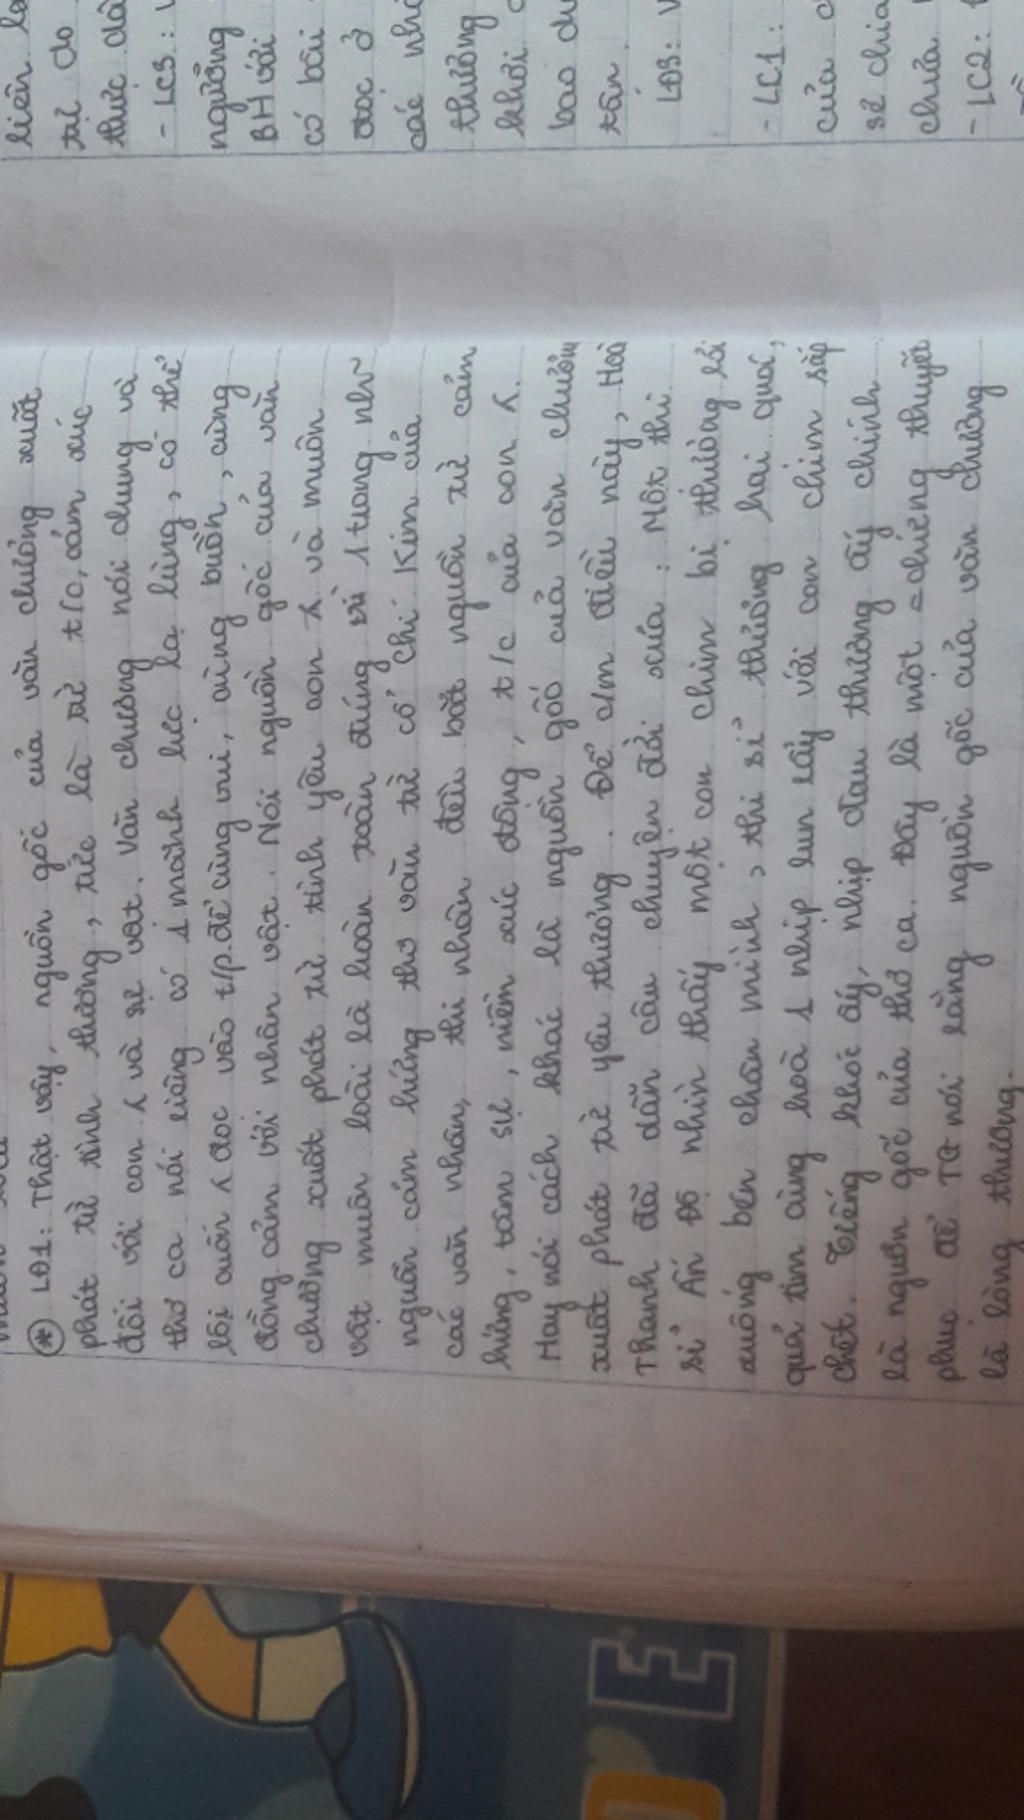 * LĐ1: Thật vậy, nguồn gốc của văn chương xuất
phát từ tình thương, tức là từ t/c, cảm xúc
đối với con λ và sự vật. Văn chương nói chung và
thơ ca nói riêng có 1 mãnh lực lạ lùng, có thể
lôi cuốn λ đọc vào t/p. để cùng vui, cùng buồn, cùng
đồng cảm với nhân vật. Nói nguồn gốc của văn
chương xuất phát từ tình yêu con λ và muôn
vật muôn loài là hoàn toàn đúng vì 1 trong nh~
nguồn cảm hứng thơ văn từ cổ chí kim của
các văn nhân, thi nhân đều bắt nguồn từ cảm
hứng, tâm sự, niềm xúc động, t/c của con λ.
Hay nói cách khác là nguồn gốc của văn chươm
xuất phát từ yêu thương. Để c/m điều này, Hoà
Thanh đã dẫn câu chuyện đời xưa: Một thi
sĩ Ấn Độ nhìn thấy một con chim bị thương rơi
xuống bên chân mình, thi sĩ thương hại quá,
quả tim cùng hoà 1 nhịp run rẩy với con chim sắp
chết. Tiếng khóc ấy, nhịp đau thương ấy chính
là nguồn gốc của thơ ca. Đây là một = chứng thuyết
phục để TG nói rằng nguồn gốc của văn chương
là lòng thương.
liên
tự do
thức
- LC3:
người
BH với
có bài
đọc ở
các
thương
khơi
bao
tân
LĐ3:
- LC1:
của
sẽ chia
chứa
- LC2:
E